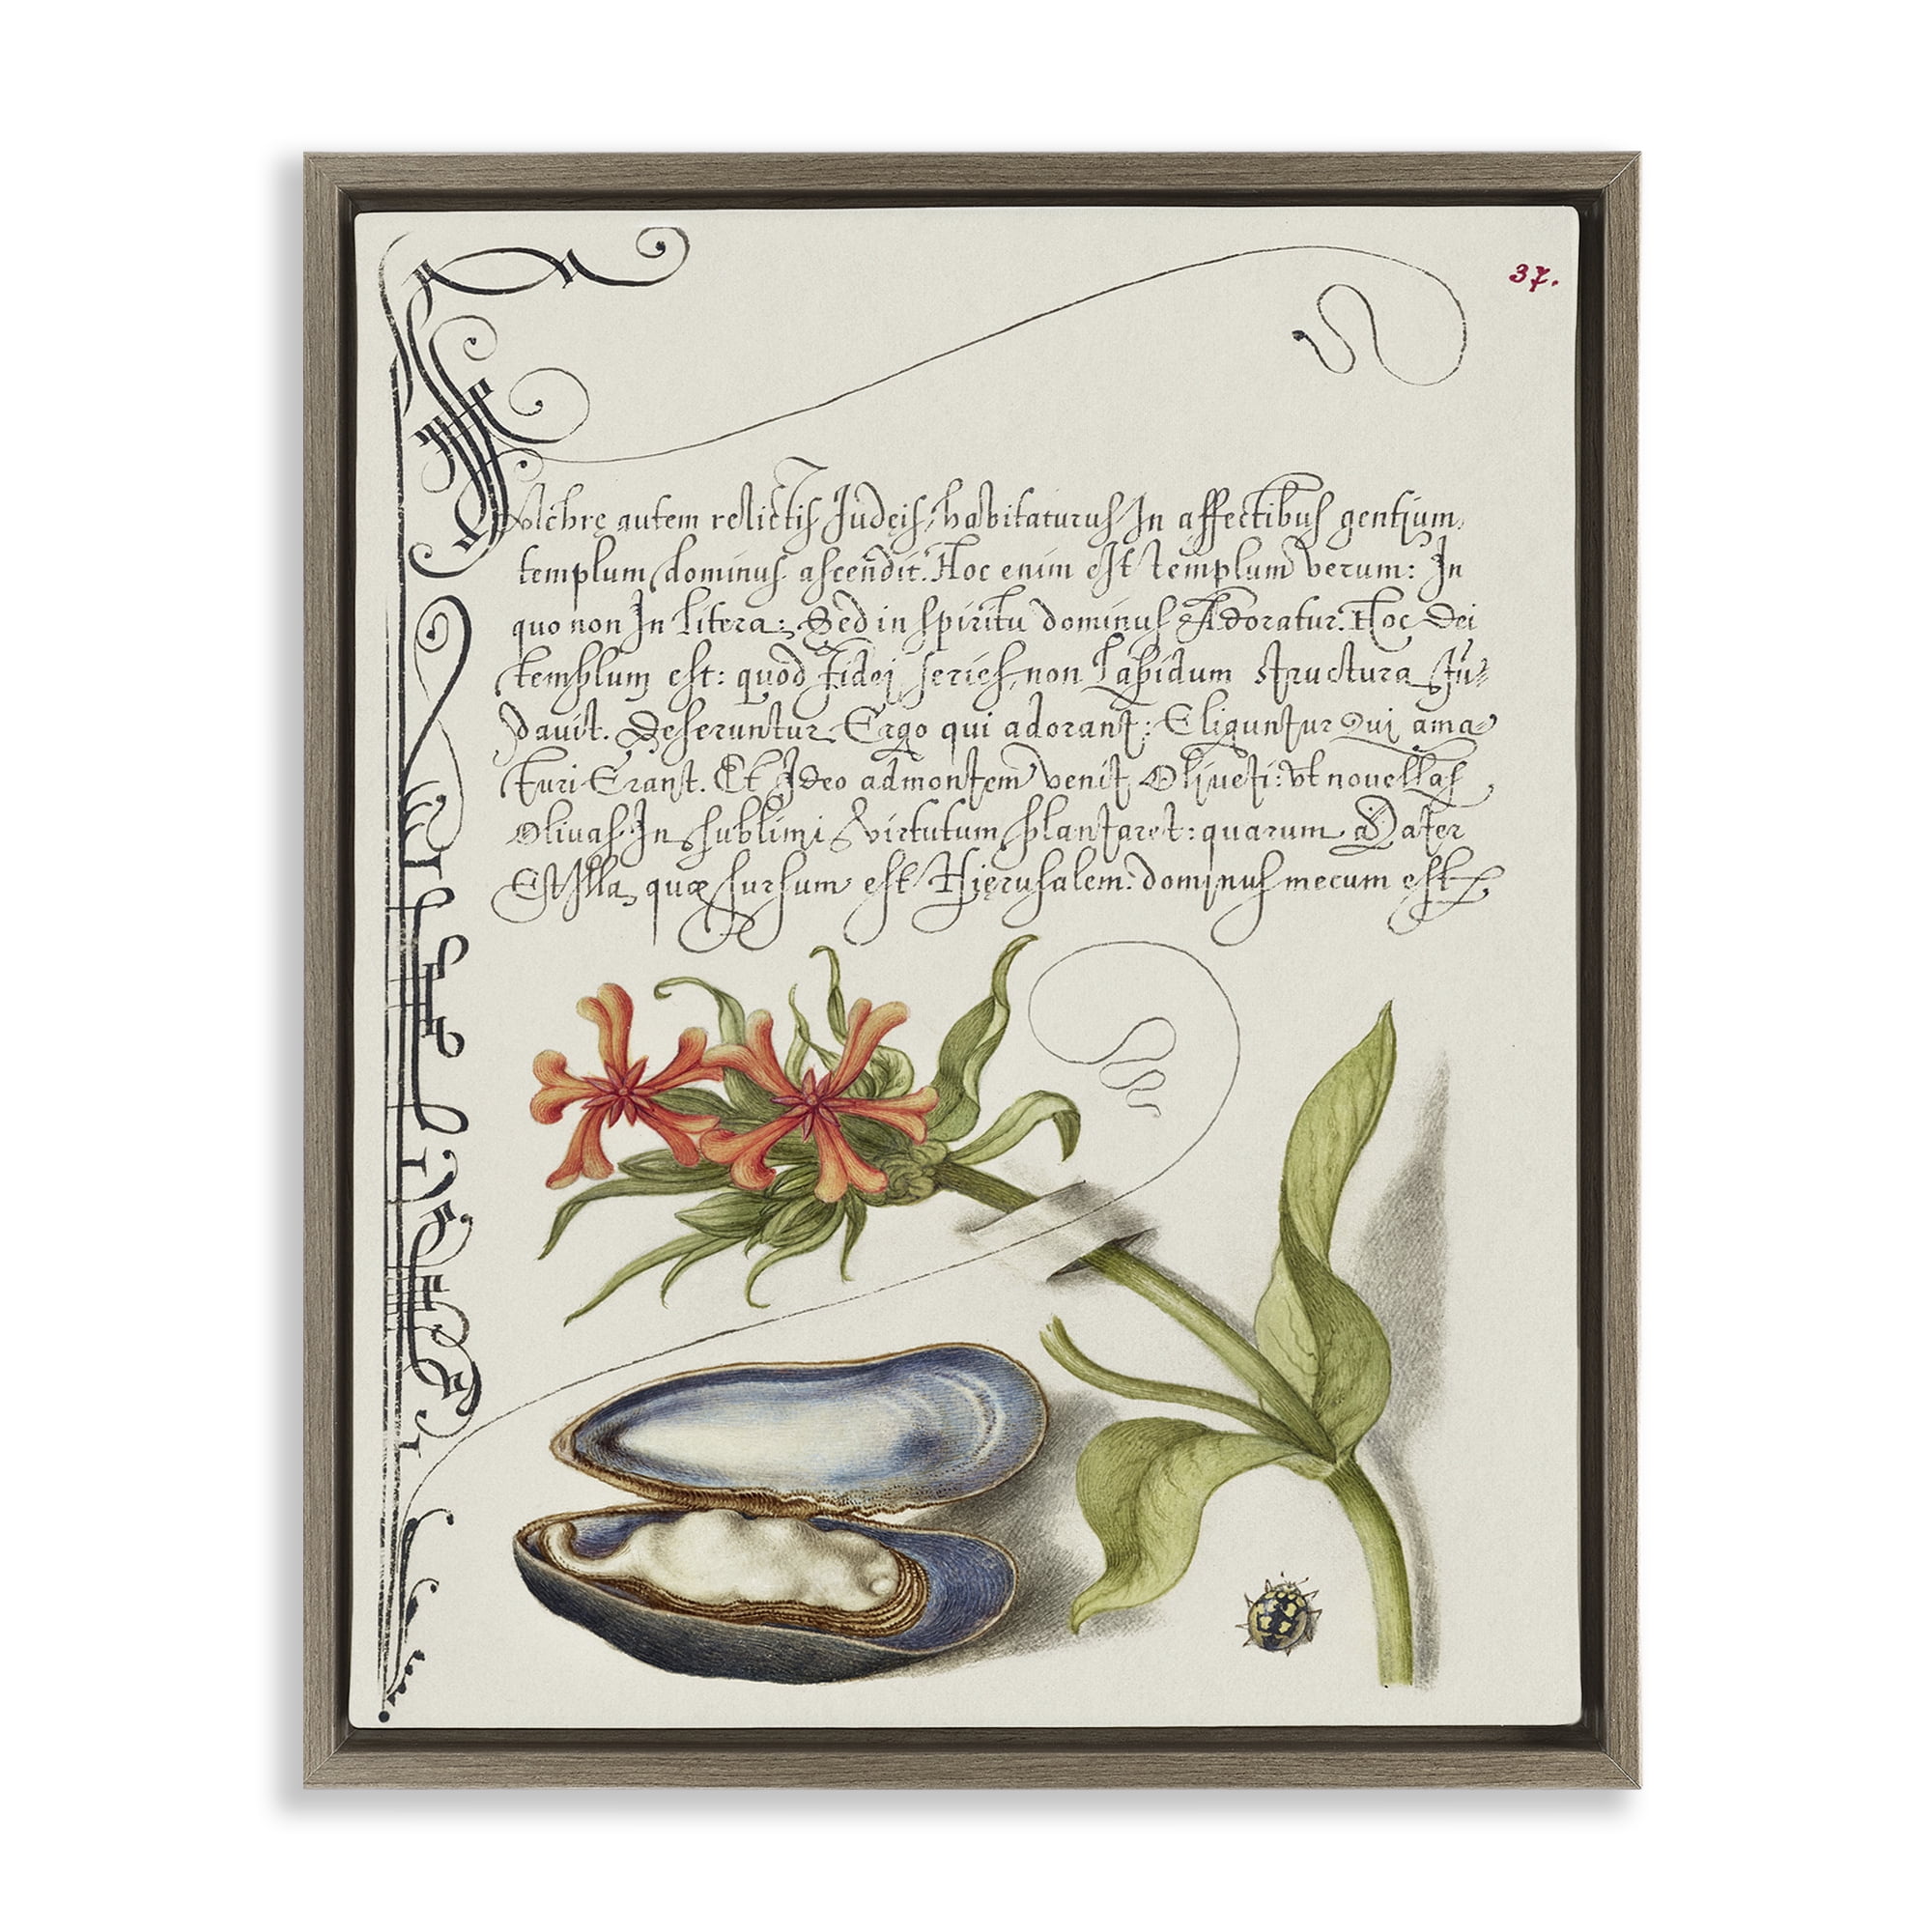 37.
Pulchre autem relictis Judeis, habitaturus In affectibus gentium,
templum, dominus ascendit. Hoc enim est templum verum: In
quo non In litera: Sed in spiritu dominus Adoratur. Hoc Dei
templum est: quod Fidei series, non Lapidum structura Fu-
davit. Deseruntur Ergo qui adorant: Eliguntur Qui ama
turi Erant. Et Ideo ad montem venit Oliueti: vt nouellas
Oliuas In sublimi virtutum plantaret: quarum Mater
Est Illa, quæ sursum est Hierusalem. dominus mecum est